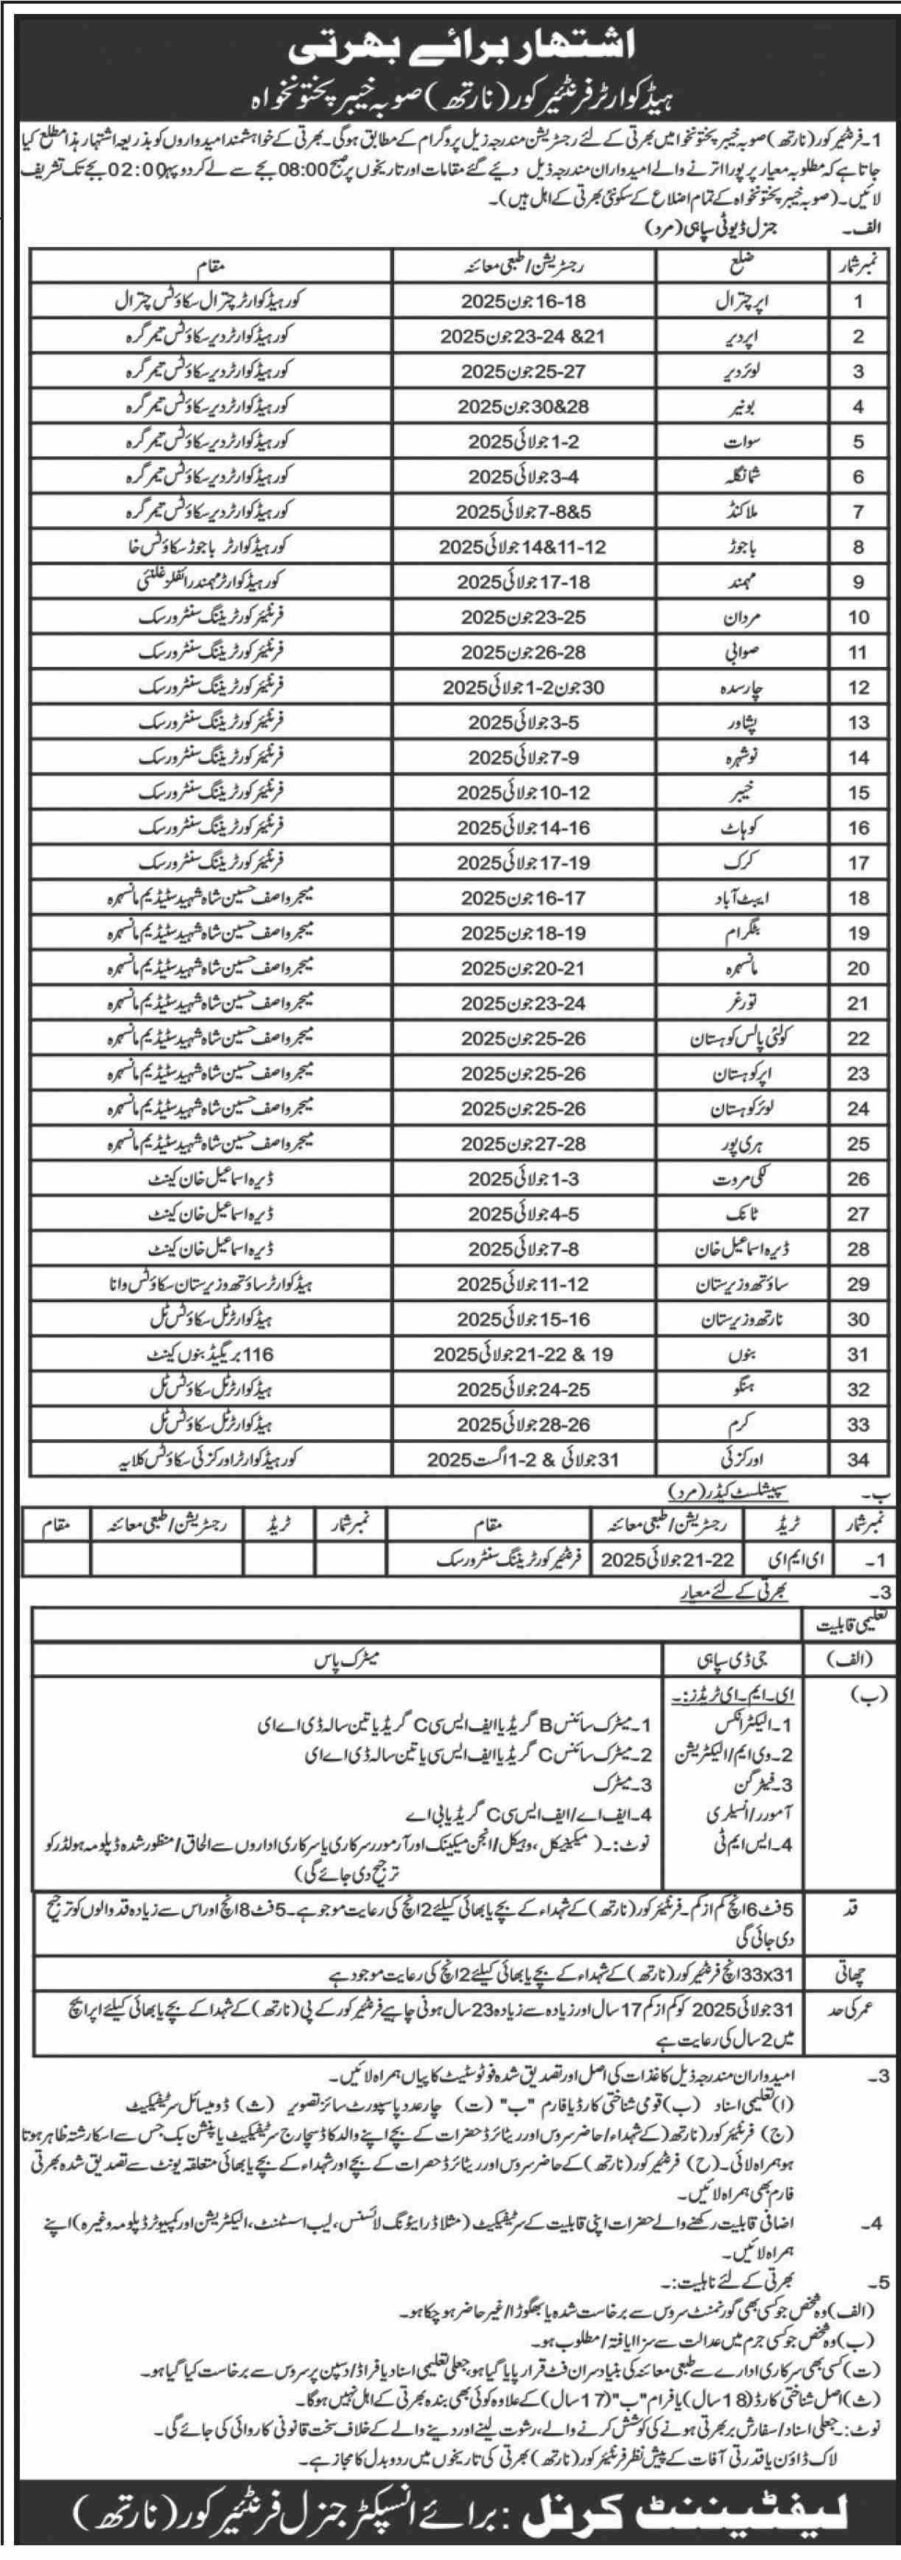 اشتہار برائے بھرتی
ہیڈ کوارٹر فرنٹیئر کور (نارتھ) صوبہ خیبر پختونخواہ
1۔ فرنٹیئر کور (نارتھ) صوبہ خیبر پختونخوا میں بھرتی کے لئے رجسٹریشن مندرجہ ذیل پروگرام کے مطابق ہوگی۔ بھرتی کے خواہشمند امیدواروں کو بذریعہ اشتہار ہذا مطلع کیا
جاتا ہے کہ مطلوبہ معیار پر پورا اترنے والے امیدواران مندرجہ ذیل دیئے گئے مقامات اور تاریخوں پر صبح 08:00 بجے سے لے کر دوپہر 02:00 بجے تک تشریف
لائیں۔ (صوبہ خیبر پختونخواہ کے تمام اضلاع کے سکونتی بھرتی کے اہل ہیں)۔
الف۔ جنرل ڈیوٹی سپاہی (مرد)
نمبر شمار ضلع رجسٹریشن/طبعی معائنہ مقام
1 اپر چترال 16-18 جون 2025 کور ہیڈکوارٹر چترال سکاؤٹس چترال
2 اپر دیر 21& 23-24 جون 2025 کور ہیڈکوارٹر دیر سکاؤٹس تیمرگرہ
3 لوئر دیر 25-27 جون 2025 کور ہیڈکوارٹر دیر سکاؤٹس تیمرگرہ
4 بونیر 28&30 جون 2025 کور ہیڈکوارٹر دیر سکاؤٹس تیمرگرہ
5 سوات 1-2 جولائی 2025 کور ہیڈکوارٹر دیر سکاؤٹس تیمرگرہ
6 شانگلہ 3-4 جولائی 2025 کور ہیڈکوارٹر دیر سکاؤٹس تیمرگرہ
7 ملاکنڈ 5&7-8 جولائی 2025 کور ہیڈکوارٹر دیر سکاؤٹس تیمرگرہ
8 باجوڑ 11-12&14 جولائی 2025 کور ہیڈکوارٹر باجوڑ سکاؤٹس خا
9 مہمند 17-18 جولائی 2025 کور ہیڈکوارٹر مہمند رائفلز غلنئی
10 مردان 23-25 جون 2025 فرنٹیئر کور ٹریننگ سنٹر ورسک
11 صوابی 26-28 جون 2025 فرنٹیئر کور ٹریننگ سنٹر ورسک
12 چارسدہ 30 جون 1-2 جولائی 2025 فرنٹیئر کور ٹریننگ سنٹر ورسک
13 پشاور 3-5 جولائی 2025 فرنٹیئر کور ٹریننگ سنٹر ورسک
14 نوشہرہ 7-9 جولائی 2025 فرنٹیئر کور ٹریننگ سنٹر ورسک
15 خیبر 10-12 جولائی 2025 فرنٹیئر کور ٹریننگ سنٹر ورسک
16 کوہاٹ 14-16 جولائی 2025 فرنٹیئر کور ٹریننگ سنٹر ورسک
17 کرک 17-19 جولائی 2025 فرنٹیئر کور ٹریننگ سنٹر ورسک
18 ایبٹ آباد 16-17 جون 2025 میجر واصف حسین شاہ شہید سٹیڈیم مانسہرہ
19 بٹگرام 18-19 جون 2025 میجر واصف حسین شاہ شہید سٹیڈیم مانسہرہ
20 مانسہرہ 20-21 جون 2025 میجر واصف حسین شاہ شہید سٹیڈیم مانسہرہ
21 تورغر 23-24 جون 2025 میجر واصف حسین شاہ شہید سٹیڈیم مانسہرہ
22 کولئی پالس کوہستان 25-26 جون 2025 میجر واصف حسین شاہ شہید سٹیڈیم مانسہرہ
23 اپر کوہستان 25-26 جون 2025 میجر واصف حسین شاہ شہید سٹیڈیم مانسہرہ
24 لوئر کوہستان 25-26 جون 2025 میجر واصف حسین شاہ شہید سٹیڈیم مانسہرہ
25 ہری پور 27-28 جون 2025 میجر واصف حسین شاہ شہید سٹیڈیم مانسہرہ
26 لکی مروت 1-3 جولائی 2025 ڈیرہ اسماعیل خان کینٹ
27 ٹانک 4-5 جولائی 2025 ڈیرہ اسماعیل خان کینٹ
28 ڈیرہ اسماعیل خان 7-8 جولائی 2025 ڈیرہ اسماعیل خان کینٹ
29 ساؤتھ وزیرستان 11-12 جولائی 2025 ہیڈکوارٹر ساؤتھ وزیرستان سکاؤٹس وانا
30 نارتھ وزیرستان 15-16 جولائی 2025 ہیڈکوارٹر ٹل سکاؤٹس ٹل
31 بنوں 19 & 21-22 جولائی 2025 116 بریگیڈ بنوں کینٹ
32 ہنگو 24-25 جولائی 2025 ہیڈکوارٹر ٹل سکاؤٹس ٹل
33 کرم 26-28 جولائی 2025 ہیڈکوارٹر ٹل سکاؤٹس ٹل
34 اورکزئی 31 جولائی & 1-2 اگست 2025 کور ہیڈکوارٹر اورکزئی سکاؤٹس کلایہ
ب۔ سپیشلسٹ کیڈر (مرد)
نمبر شمار ٹریڈ رجسٹریشن/طبعی معائنہ مقام نمبر شمار ٹریڈ رجسٹریشن/طبعی معائنہ مقام
1۔ ای ایم ای 21-22 جولائی 2025 فرنٹیئر کور ٹریننگ سنٹر ورسک
3۔ بھرتی کے لئے معیار
تعلیمی قابلیت
(الف) جی ڈی سپاہی میٹرک پاس
(ب) ای۔ایم۔ای ٹریڈز:۔
1۔ الیکٹرانکس 1۔ میٹرک سائنس B گریڈ یا ایف ایس سی C گریڈ یا تین سالہ ڈی اے ای
2۔ وی ایم/الیکٹریشن 2۔ میٹرک سائنس C گریڈ یا ایف ایس سی یا تین سالہ ڈی اے ای
3۔ فیٹر گن 3۔ میٹرک
آمورر/انسلری 4۔ ایف اے/ایف ایس سی C گریڈ یا بی اے
4۔ ایس ایم ٹی نوٹ:۔ (میکینیکل، وہیکل/انجن میکینک اور آرمورر سرکاری یا سرکاری اداروں سے الحاق/منظور شدہ ڈپلومہ ہولڈر کو
ترجیح دی جائے گی)
قد 5فٹ 6انچ کم از کم۔ فرنٹیئر کور (نارتھ) کے شہداء کے بچے یا بھائی کیلئے 2انچ کی رعایت موجود ہے۔ 5فٹ 8انچ اور اس سے زیادہ قد والوں کو ترجیح
دی جائی گی
چھاتی 33x31 انچ فرنٹیئر کور (نارتھ) کے شہداء کے بچے یا بھائی کیلئے 2انچ کی رعایت موجود ہے
عمر کی حد 31 جولائی 2025 کو کم از کم 17 سال اور زیادہ سے زیادہ 23 سال ہونی چاہیے فرنٹیئر کور کے پی (نارتھ) کے شہدا کے بچے یا بھائی کیلئے اپر ایج
میں 2 سال کی رعایت ہے
3۔ امیدواران مندرجہ ذیل کاغذات کی اصل اور تصدیق شدہ فوٹو سٹیٹ کاپیاں ہمراہ لائیں۔
(ا) تعلیمی اسناد (ب) قومی شناختی کارڈ یا فارم "ب" (ت) چار عدد پاسپورٹ سائز تصویر (ث) ڈومیسائل سرٹیفکیٹ
(ج) فرنٹیئر کور (نارتھ) کے شہداء/حاضر سروس اور ریٹائرڈ حضرات کے بچے اپنے والد کا ڈسچارج سرٹیفکیٹ یا پنشن بک جس سے اسکا رشتہ ظاہر ہوتا
ہو ہمراہ لائی۔ (ح) فرنٹیئر کور (نارتھ) کے حاضر سروس اور ریٹائرڈ حضرات کے بچے اور شہداء کے بچے یا بھائی متعلقہ یونٹ سے تصدیق شدہ بھرتی
فارم بھی ہمراہ لائیں۔
4۔ اضافی قابلیت رکھنے والے حضرات اپنی قابلیت کے سرٹیفکیٹ (مثلاً ڈرائیونگ لائسنس، لیب اسسٹنٹ، الیکٹریشن اور کمپیوٹر ڈپلومہ وغیرہ) اپنے
ہمراہ لائیں۔
5۔ بھرتی کے لئے نااہلیت:۔
(الف) وہ شخص جو کسی بھی گورنمنٹ سروس سے برخاست شدہ یا بھگوڑا/غیر حاضر ہو چکا ہو۔
(ب) وہ شخص جو کسی جرم میں عدالت سے سزا یافتہ/مطلوب ہو۔
(ت) کسی بھی سرکاری ادارے سے طبعی معائنہ کی بنیاد سران فٹ قرار پایا گیا ہو، جعلی تعلیمی اسناد یا فراڈ/ڈسپلن پر سروس سے برخاست کیا گیا ہو۔
(ث) اصل شناختی کارڈ (18 سال) یا فرام "ب" (17 سال) کے علاوہ کوئی بھی بندہ بھرتی کے اہل نہیں ہوگا۔
نوٹ:۔ جعلی اسناد/سفارش پر بھرتی ہونے کی کوشش کرنے والے، رشوت لینے اور دینے والے کے خلاف سخت قانونی کاروائی کی جائے گی۔
لاک ڈاؤن یا قدرتی آفات کے پیش نظر فرنٹیئر کور (نارتھ) بھرتی کی تاریخوں میں ردوبدل کا مجاز ہے۔
لیفٹیننٹ کرنل : برائے انسپکٹر جنرل فرنٹیئر کور (نارتھ)